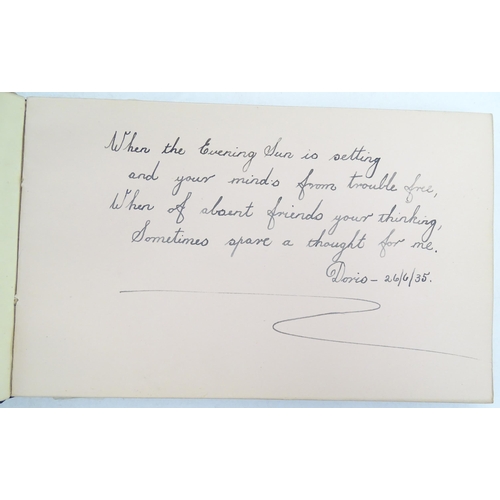 When the Evening Sun is setting
and your minds from trouble free,
When of absent friends your thinking,
Sometimes spare a thought for me.
Doris - 26/6/35.